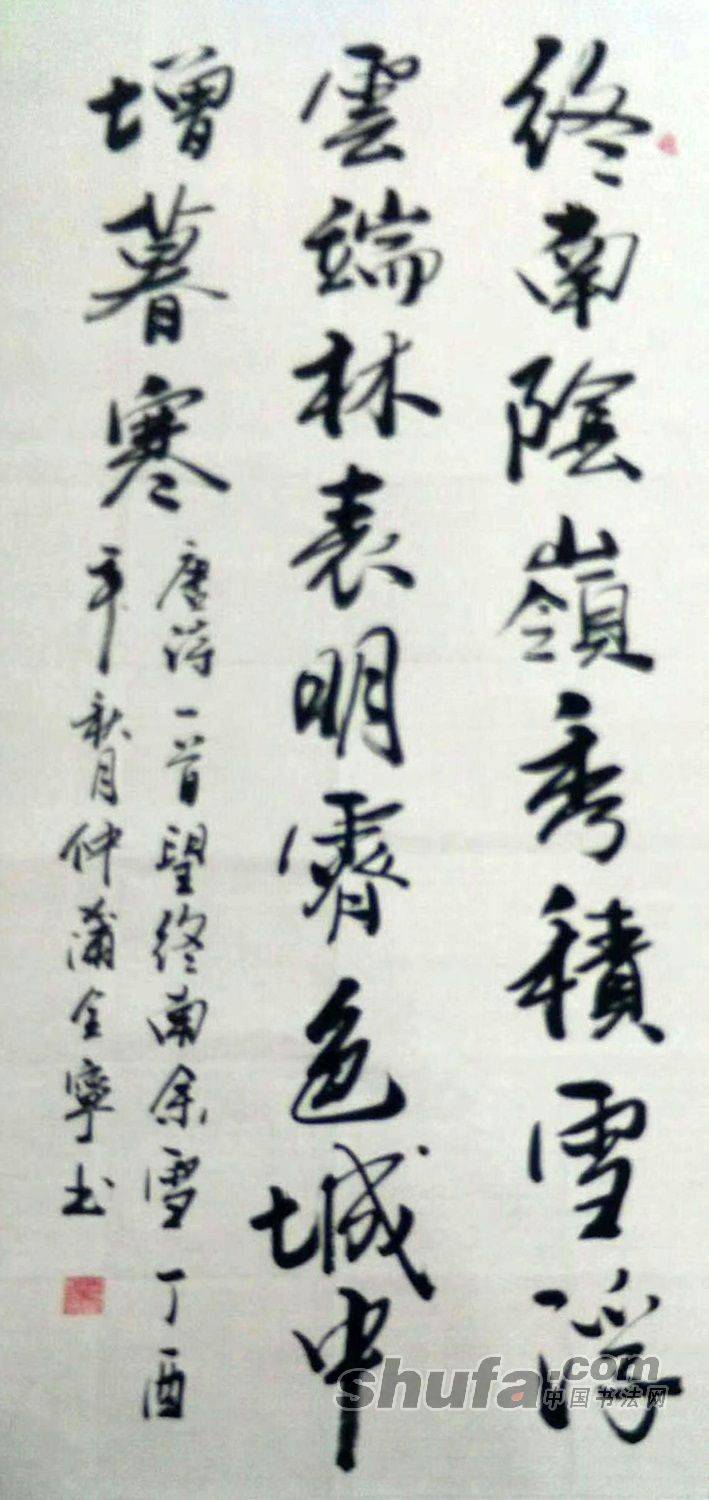 終南陰嶺秀積雪浮
雲端林表明霽色城中
增暮寒
唐诗一首望终南余雪丁酉
年秋月仲蒲全寧书
shufa.com
中国书法网